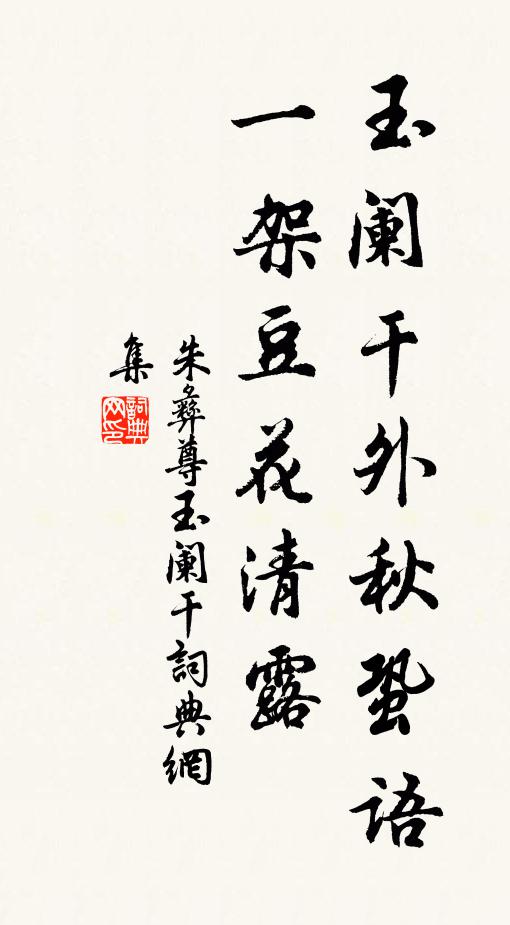 玉阑干外秋蛩语
一架豆花清露
朱彝尊玉阑干詞典網
集
詞典网印